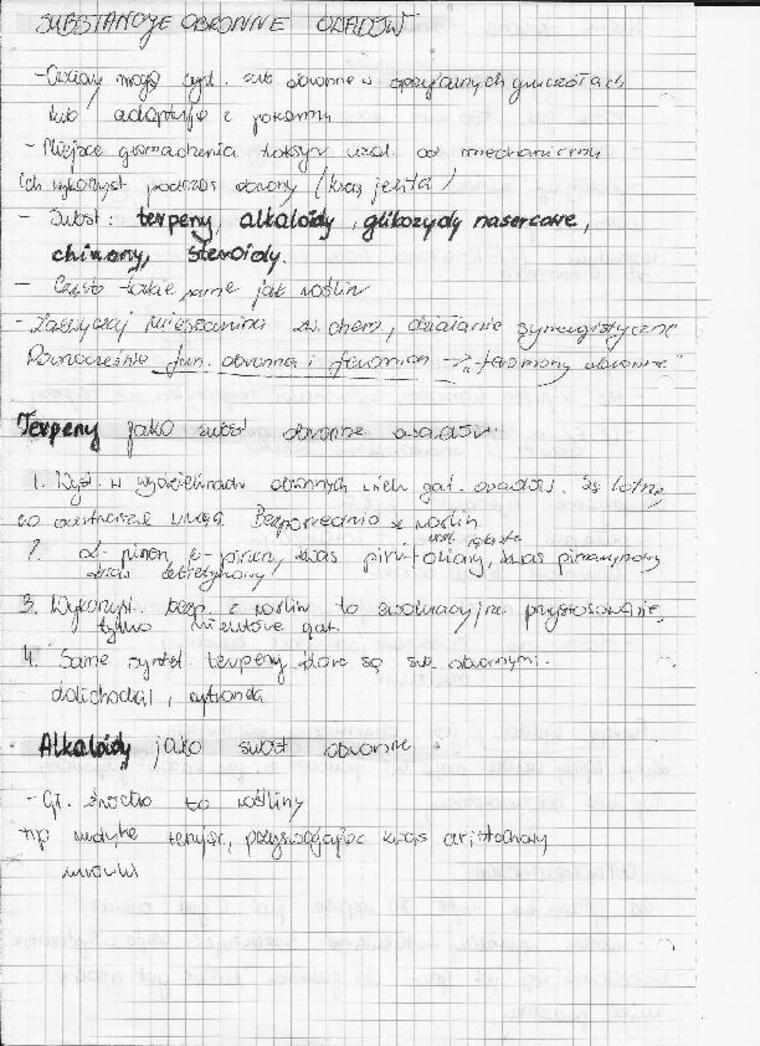 SUBSTANCJE OBRONNE OWADÓW
- Owady mogą syst. sub obronne w specjalnych gruczołach
lub adaptuje z pokarmu
- Miejsce gromadzenia toksyn uzal. od mechanizmu
ich wykorzyst podczas obrony (krew, jelita)
- Subst: terpeny, alkaloidy, glikozydy nasercowe,
chinony, steroidy.
- Często takie same jak roślin
- Zazwyczaj mieszanina zw. chem., działanie synergistyczne
Równocześnie fun. obronna i feromon -> "feromony obronne"
Terpeny jako subst obronne owadów:
1. Wyst. w wydzielinach obronnych wielu gat. owadów. Są lotne,
co uwagę. Bezpośrednio z roślin
2. α-pinen, β-pinen, kwas
kwas
3. Wykorzyst. bezp. z roślin to ewolucyjne przystosowanie,
tylko gat.
4. Same syntet. terpeny które są sub. obronnymi.
dolichodial,
Alkaloidy jako subst obronne
- Gł. źródło to rośliny
np motyle kwas
mrówki